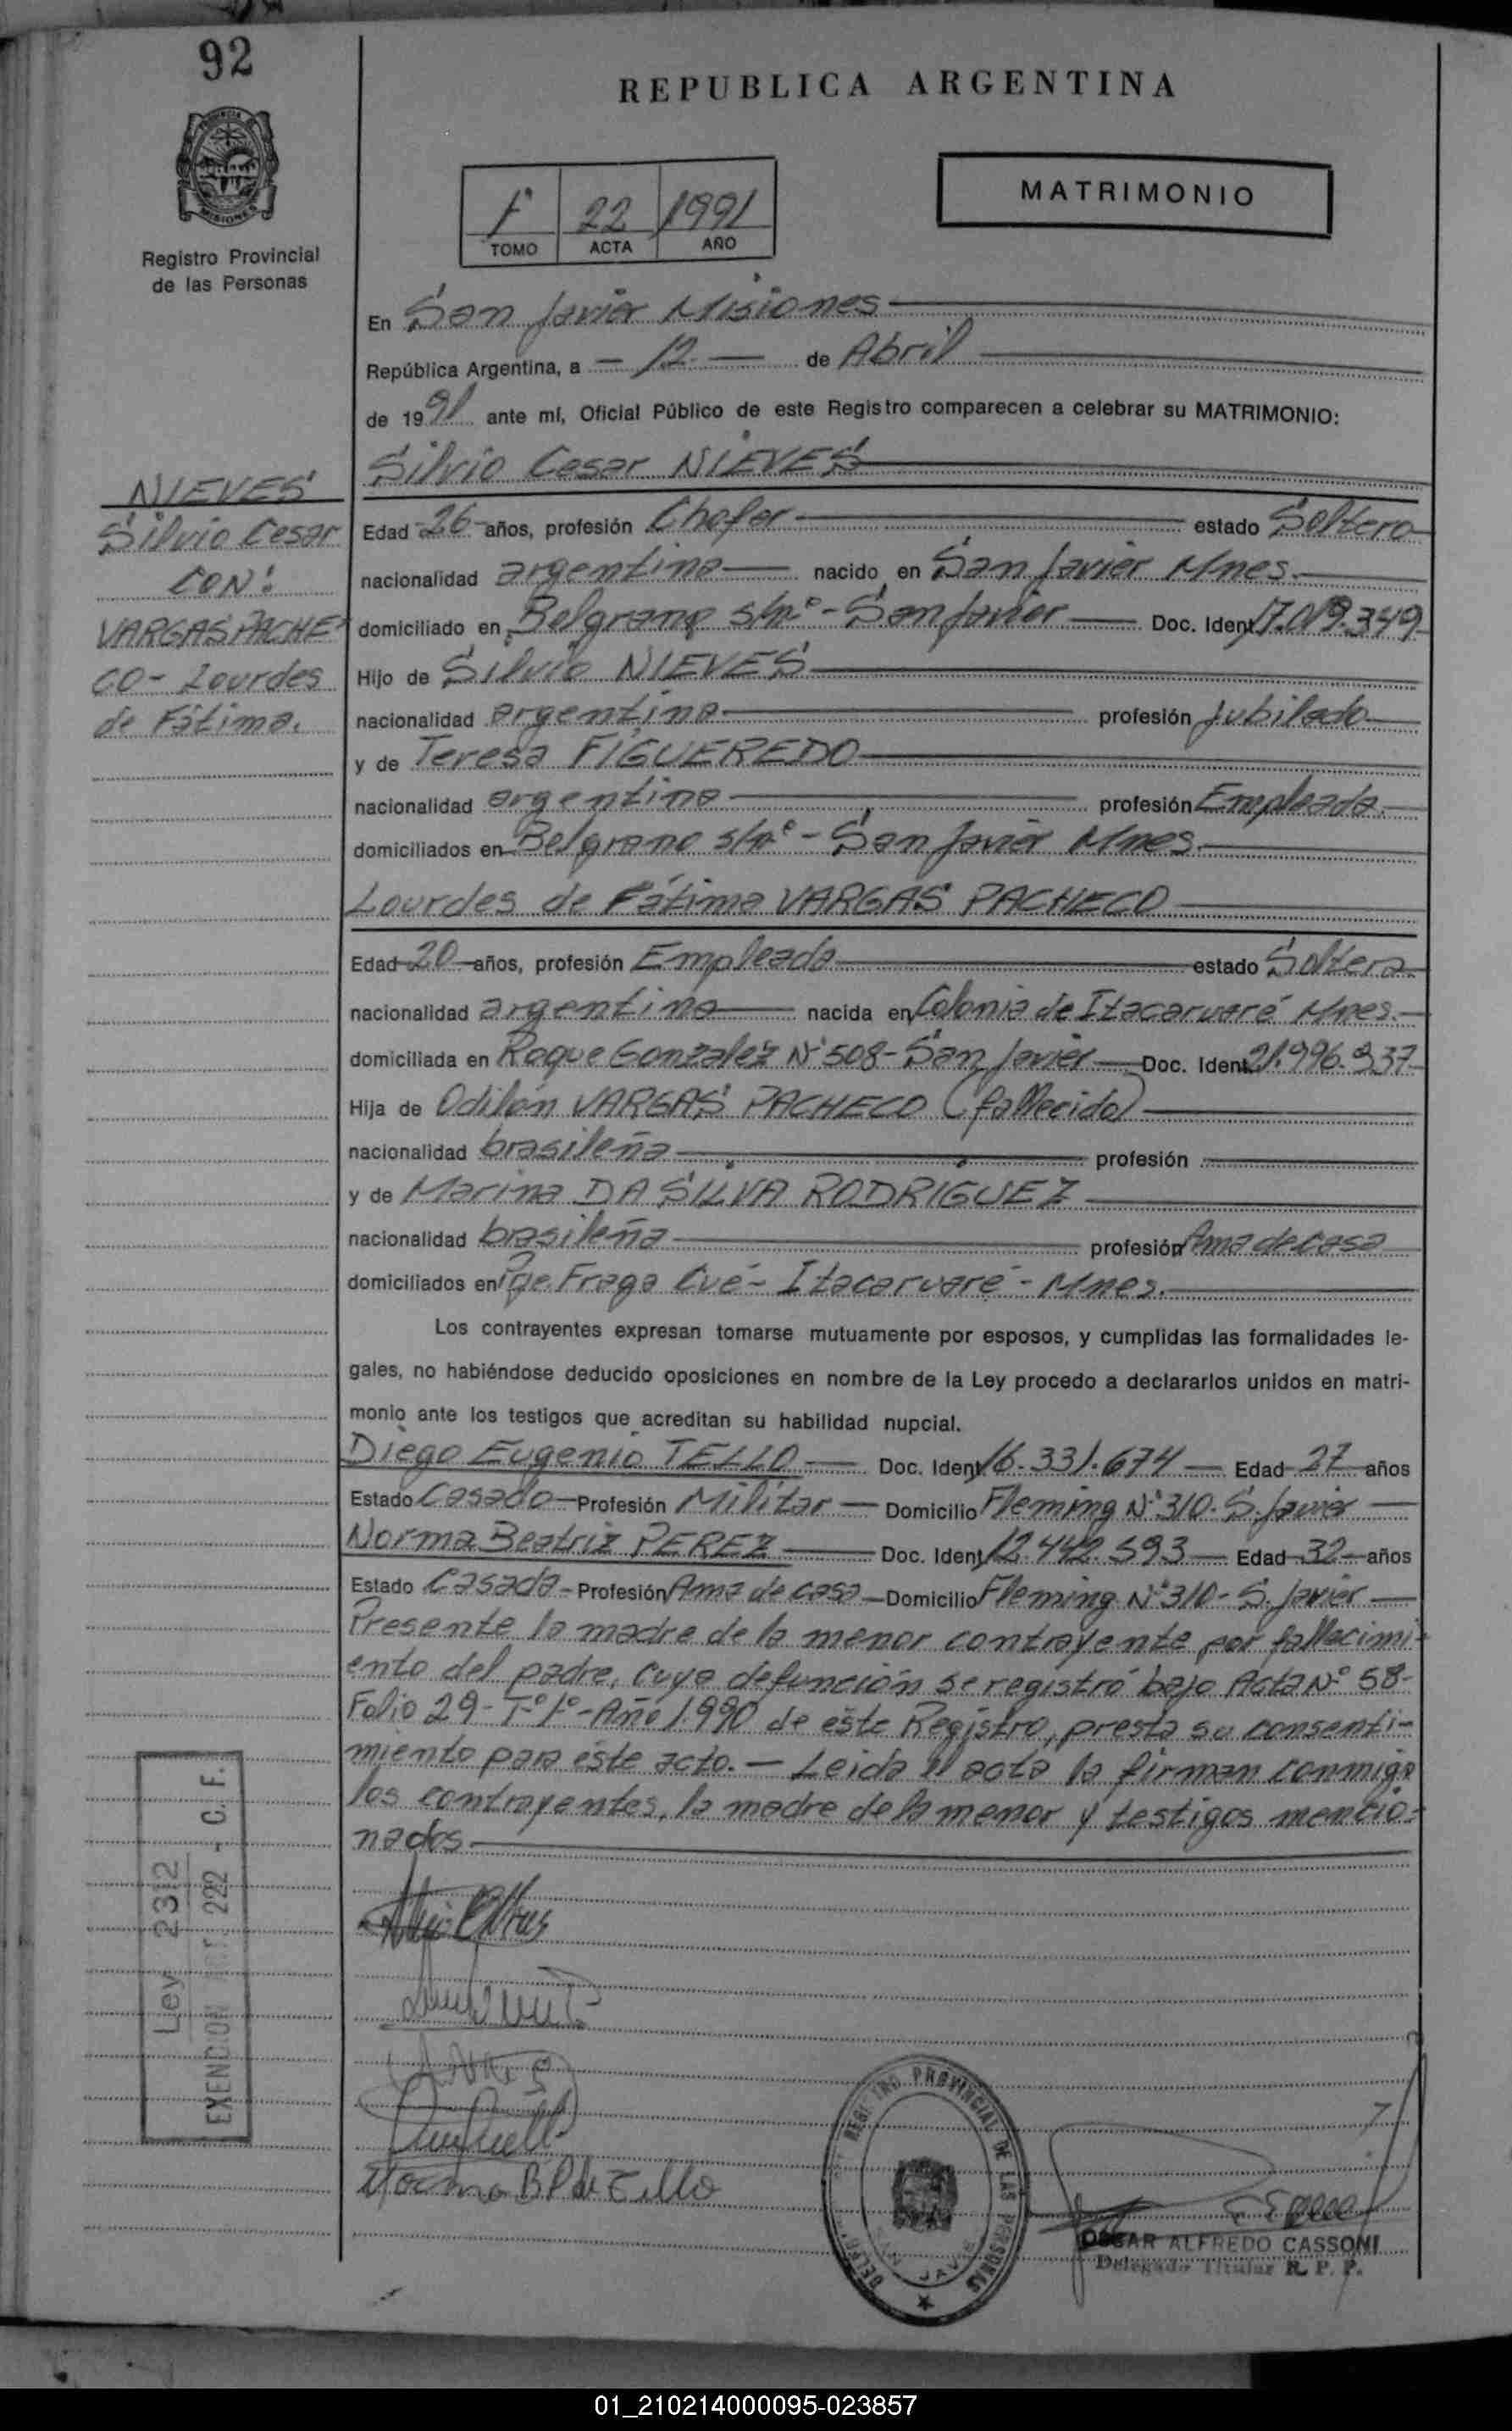 92
REPUBLICA ARGENTINA
PROVINCIA DE
MISIONES
Registro Provincial
de las Personas
1° 22 1991
TOMO ACTA AÑO
MATRIMONIO
En San Javier Misiones
República Argentina, a - 12 - de Abril
de 1991 ante mí, Oficial Público de este Registro comparecen a celebrar su MATRIMONIO:
Silvio Cesar NIEVES
NIEVES
Silvio Cesar
CON:
VARGAS PACHE-
CO - Lourdes
de Fátima.
Edad -26- años, profesión Chofer estado Soltero
nacionalidad argentina nacido en San Javier Mnes.
domiciliado en Belgrano s/nº - San Javier Doc. Ident. 17.019.349
Hijo de Silvio NIEVES
nacionalidad argentina profesión Jubilado
y de Teresa FIGUEREDO
nacionalidad argentina profesión Empleada.
domiciliados en Belgrano s/nº - San Javier Mnes.
Lourdes de Fátima VARGAS PACHECO
Edad 20 años, profesión Empleada estado Soltera
nacionalidad argentina nacida en Colonia de Itacaruaré Mnes.
domiciliada en Roque Gonzalez Nº 508 - San Javier Doc. Ident. 21.996.937
Hija de Odilón VARGAS PACHECO (fallecido)
nacionalidad brasileña profesión
y de Marina DA SILVA RODRIGUEZ
nacionalidad brasileña profesión Ama de casa
domiciliados en Pje. Fraga Cué - Itacaruaré - Mnes.
Los contrayentes expresan tomarse mutuamente por esposos, y cumplidas las formalidades le-
gales, no habiéndose deducido oposiciones en nombre de la Ley procedo a declararlos unidos en matri-
monio ante los testigos que acreditan su habilidad nupcial.
Diego Eugenio TELLO Doc. Ident. 16.331.674 Edad 27 años
Estado Casado Profesión Militar Domicilio Fleming Nº 310. S. Javier
Norma Beatriz PEREZ Doc. Ident. 12.442.593 Edad 32 años
Estado Casada Profesión Ama de casa Domicilio Fleming Nº 310 - S. Javier
Presente la madre de la menor contrayente por fallecimi-
ento del padre, cuya defunción se registró bajo Acta Nº 58-
Folio 29 - Tº 1º - Año 1.990 de éste Registro, presta su consenti-
miento para éste acto. - Leida el acta la firman conmigo
los contrayentes, la madre de la menor y testigos mencio-
nados.
Ley 2312
EXENCION ART. 222 - C. F.
Norma B P de Tello
REGISTRO PROVINCIAL DE LAS PERSONAS
SAN JAVIER
OSCAR ALFREDO CASSONI
Delegado Titular R. P. P.
01_210214000095-023857